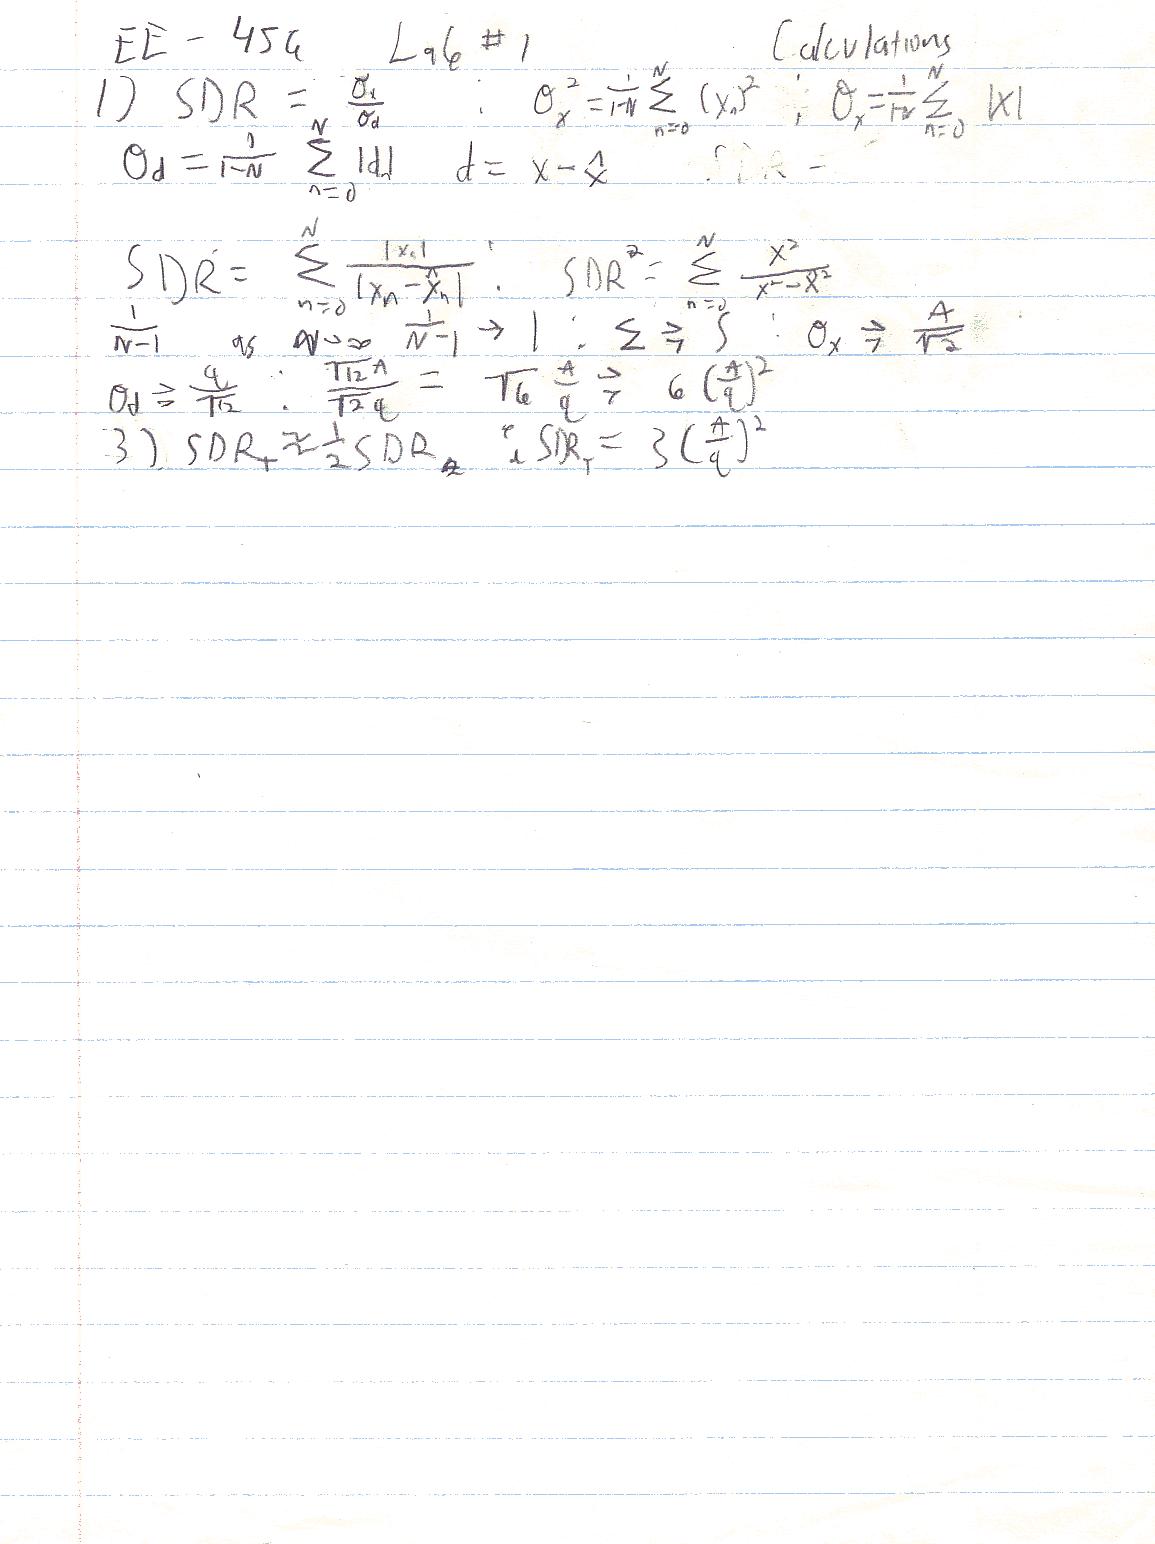 EE - 456 Lab #1 Calculations
1) SDR = σx/σd : σx² = 1/(1-N) Σ_{n=0}^{N} (xn)² ; σx = 1/(1-N) Σ_{n=0}^{N} |x|
σd = 1/(1-N) Σ_{n=0}^{N} |d| d = x - x̂ SDR =
SDR = Σ_{n=0}^{N} |xn|/|xn - x̂n| : SDR² = Σ_{n=0}^{N} x²/(x² - x̂²)
1/(N-1) as N→∞ 1/(N-1) → 1 : Σ ⇒ ∫ : σx ⇒ A/√2
σd ⇒ q/√12 ∴ √12 A/√2 q = √6 A/q ⇒ 6 (A/q)²
3) SDR_T ≈ 1/2 SDR : SDR_T = 3 (A/q)²